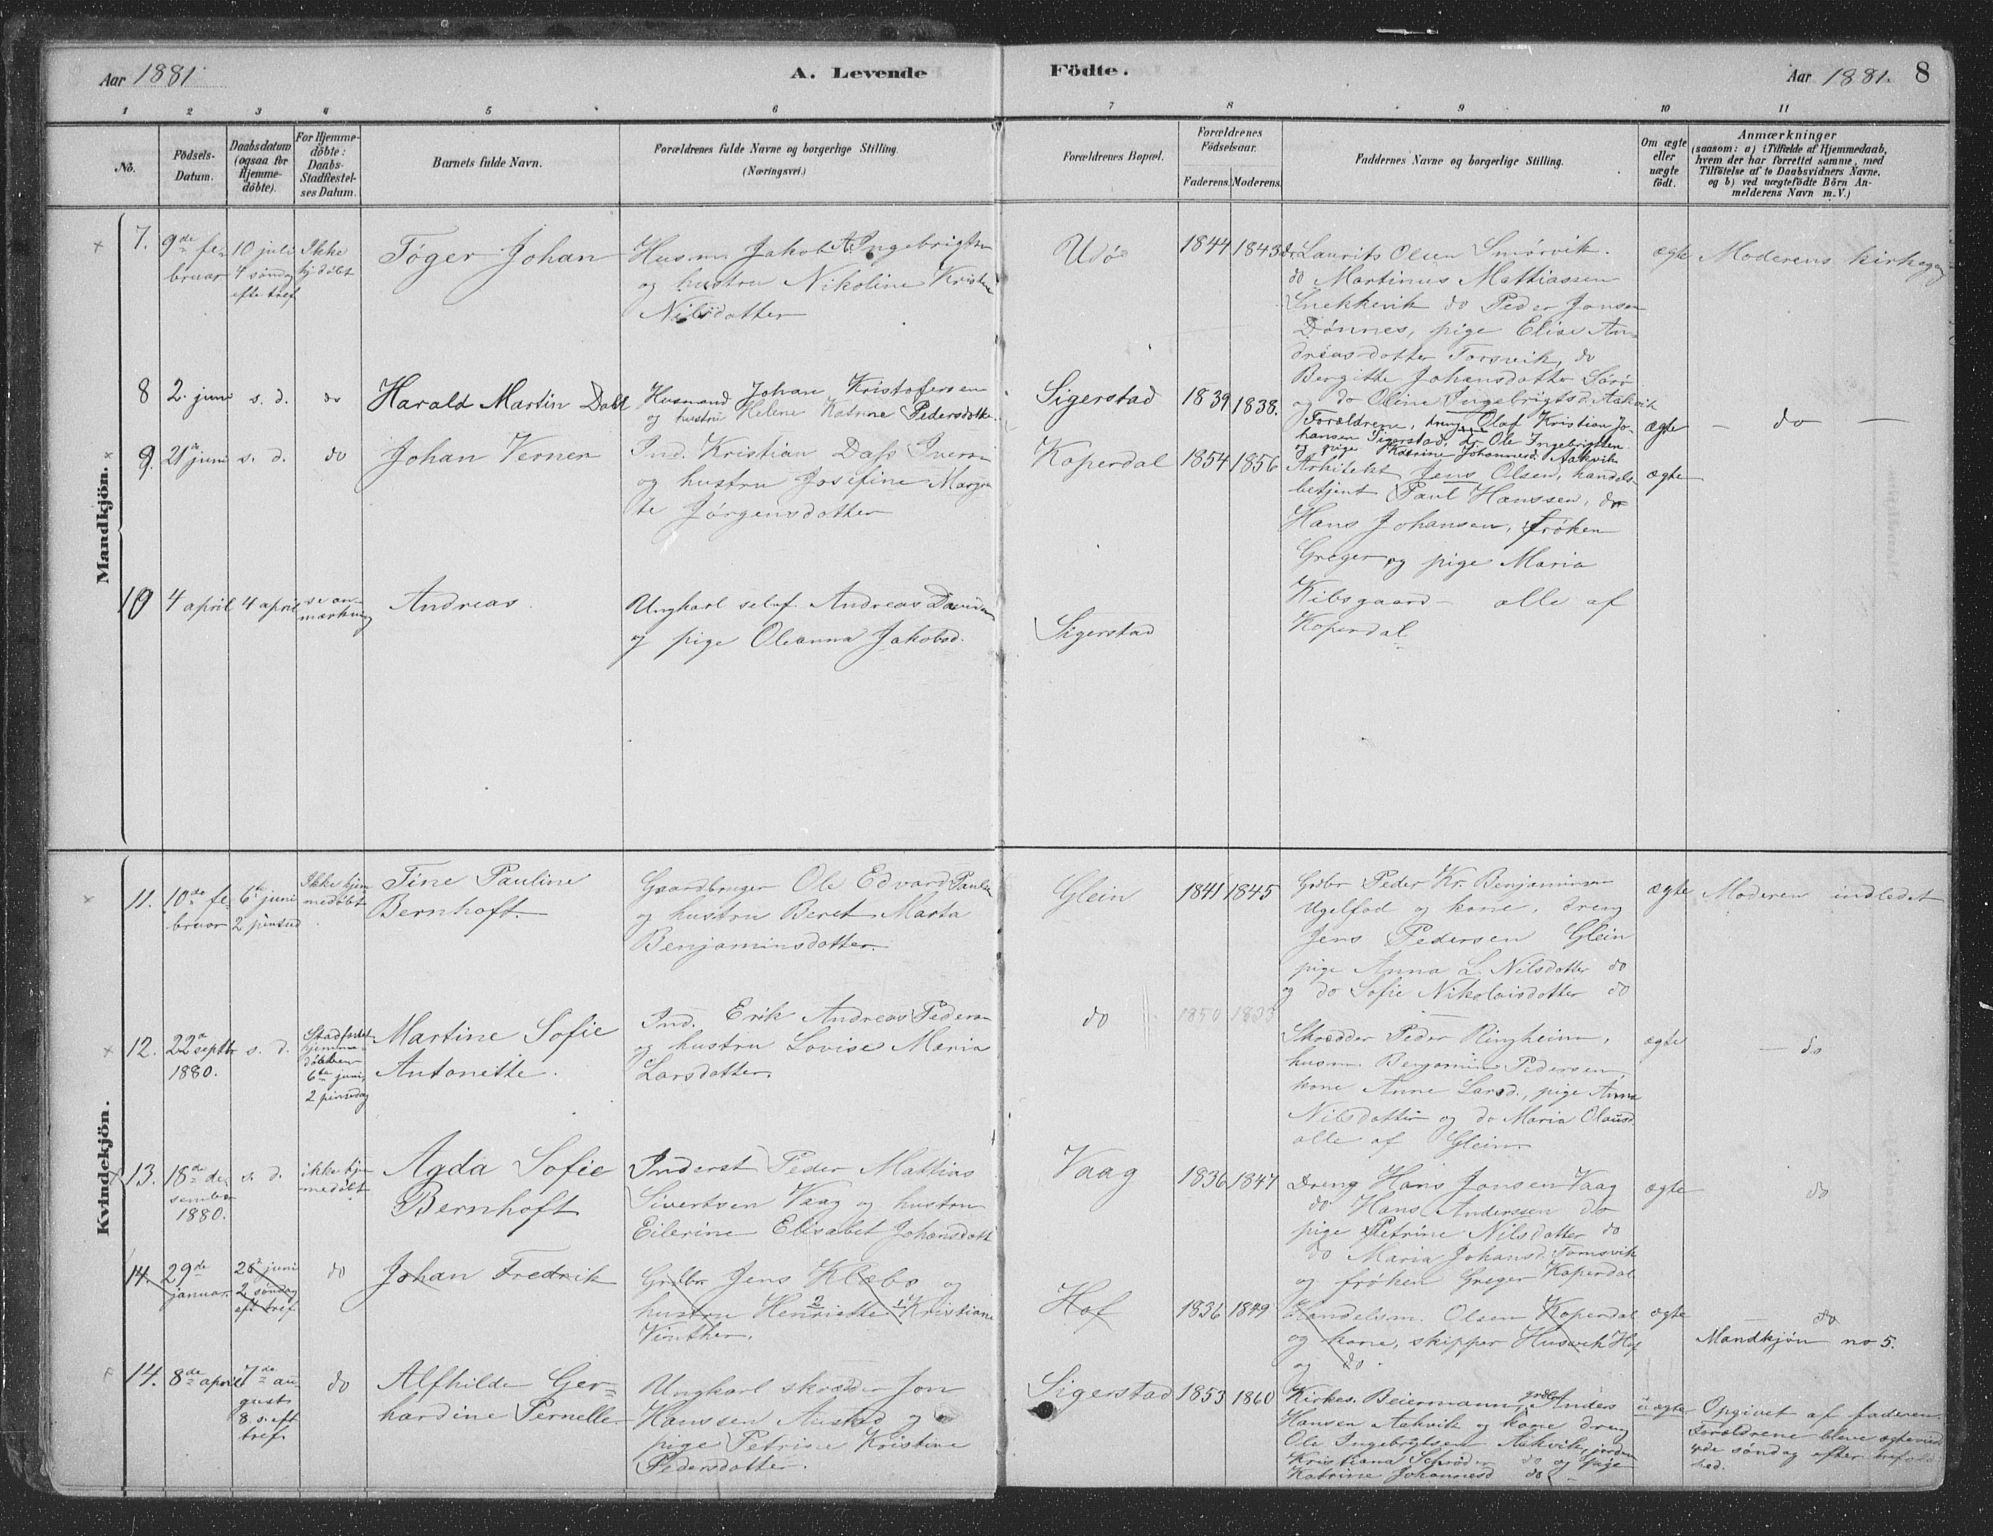 Aar 1881. A. Levende Födte. Aar 1881. 8
1 2 3 4 5 6 7 8 9 10 11
No. Födsels-Datum. Daabsdatum (ogsaa for Hjemme-döbte). For Hjemme-döbte: Daabs-Stadfæstel-ses Datum. Barnets fulde Navn. Forældrenes fulde Navne og borgerlige Stilling. (Næringsvei.) Forældrenes Bopæl. Forældrenes Födselsaar. Faderens. Moderens. Faddernes Navne og borgerlige Stilling. Om ægte eller uægte födt. Anmærkninger (saasom: a) i Tilfælde af Hjemmedaab, hvem der har forrettet samme, med Tilföielse af to Daabsvidners Navne, og b) ved uægtefödte Börn An-melderens Navn m.V.)
Mandkjön.
7. 9de fe-
bruar
10 juli
4 søndag
efte tref
Ikke
hj døbt
Tøger Johan
Husm. Jakob A. Ingebrigtsen
og hustru Nikoline Kristine
Nilsdotter
Udø
1844 1843
Laurits Olsen Smørvik.
do Martinus Mattiassen
Snekkevik do Peder Jansen
Dønnes, pige Elise An-
dreasdotter Forsvik, do
Bergitte Johansdotter Sørø
og do Oline Ingebrigtsd. Aakvik
ægte
Moderens kirkegang
8 2. juni s. d. do
Harald Martin Dahl
Husmand Johan Kristofersen
og hustru Helene Katrine Pedersdotter
Sigerstad
1839 1838.
Forældrene, dreng Olaf Kristian Jo-
hansen Sigerstad, dr. Ole Ingebrigtsen
og pige Katrine Johannesd. Aakvik
ægte
– do –
9. 21de juni s. d. do
Johan Verner
Ind. Kristian Dass Iversen
og hustru Josefine Margre
te Jørgensdotter
Koperdal
1854 1856
Arkitekt Jens Olsen, handels
betjent Paul Hanssen, do
Hans Johansen, frøken
Greger og pige Maria
Kibsgaard – alle af
Koperdal
ægte
10 4 april 4 april
se an-
mærkning
Andreas
Ungkarl selvf. Andreas Davidsen
og pige Oleanna Jakobsd.
Sigerstad
Kvindekjön.
11. 10de fe-
bruar
6te juni
2 pinsed
Ikke hjem
medøbt
Tine Pauline
Bernhoft.
Gaardbruger Ole Edvard Paulsen
og hustru Beret Marta
Benjaminsdotter
Glein
1841 1845
Grdbr Peder Kr. Benjaminsen
Ugelfad og kone, dreng
Jens Pedersen Glein
pige Anna L. Nilsdotter do
og do Sofie Nikolaisdotter do
ægte
Moderen indledet
12. 22de septbr
1880.
s. d.
Stadfæstet
hjemme-
døbben
6te juni,
2 pinsedag
Martine Sofie
Antonette.
Ind. Erik Andreas Pedersen
og hustru Lovise Maria
Larsdotter
do
1850 1853
Skrædder Peder Ringheim,
husm. Benjamin Pedersen,
kone Anne Larsd., pige Anna
Nilsdotter og do Maria Olausd
alle af Glein.
ægte
– do
13. 18de de-
sember
1880.
s. d.
ikke hjem
medøbt
Agda Sofie
Bernhoft
Inderst Peder Mattias
Sivertsen Vaag og hustru
Eilerine Elisabet Johansdott
Vaag
1836 1847
Dreng Hans Jansen Vaag
do Hans Anderssen do
pige Petrine Nilsdotter do
do Maria Johansd. Tomsvik
og frøken Greger Koperdal
ægte
do
14. 29de
januar.
26de juni
2 søndag
eft tref.
do
Johan Fredrik
Grdbr. Jens Klæbo og
hustru Henriette Kristiane
Vinther.
Hof
1836 1849
Handelsm. Olsen Koperdal
og kone, skipper Husvik Hof
og do.
ægte
– do
Mandkjøn no 5.
14. 8de april
7de au-
gust
8. s. eft
tref.
do
Alfhilde Ger-
hardine Pernelle
Ungkarl skrædder Jon
Hanssen Austad og
pige Petrine Kristine
Pedersdotter.
Sigerstad
1853 1860
Kirkes. Beiermann, grdbr Andes
Hansen Aakvik og kone dreng
Ole Ingebrigtsen Aakvik, jordm
Kristiana Schrøder do og pige
Katrine Johannesd do
uægte
Opgivet af faderen.
Forældrene bleve ægteviede
4de søndag efter trefoldig
hed.